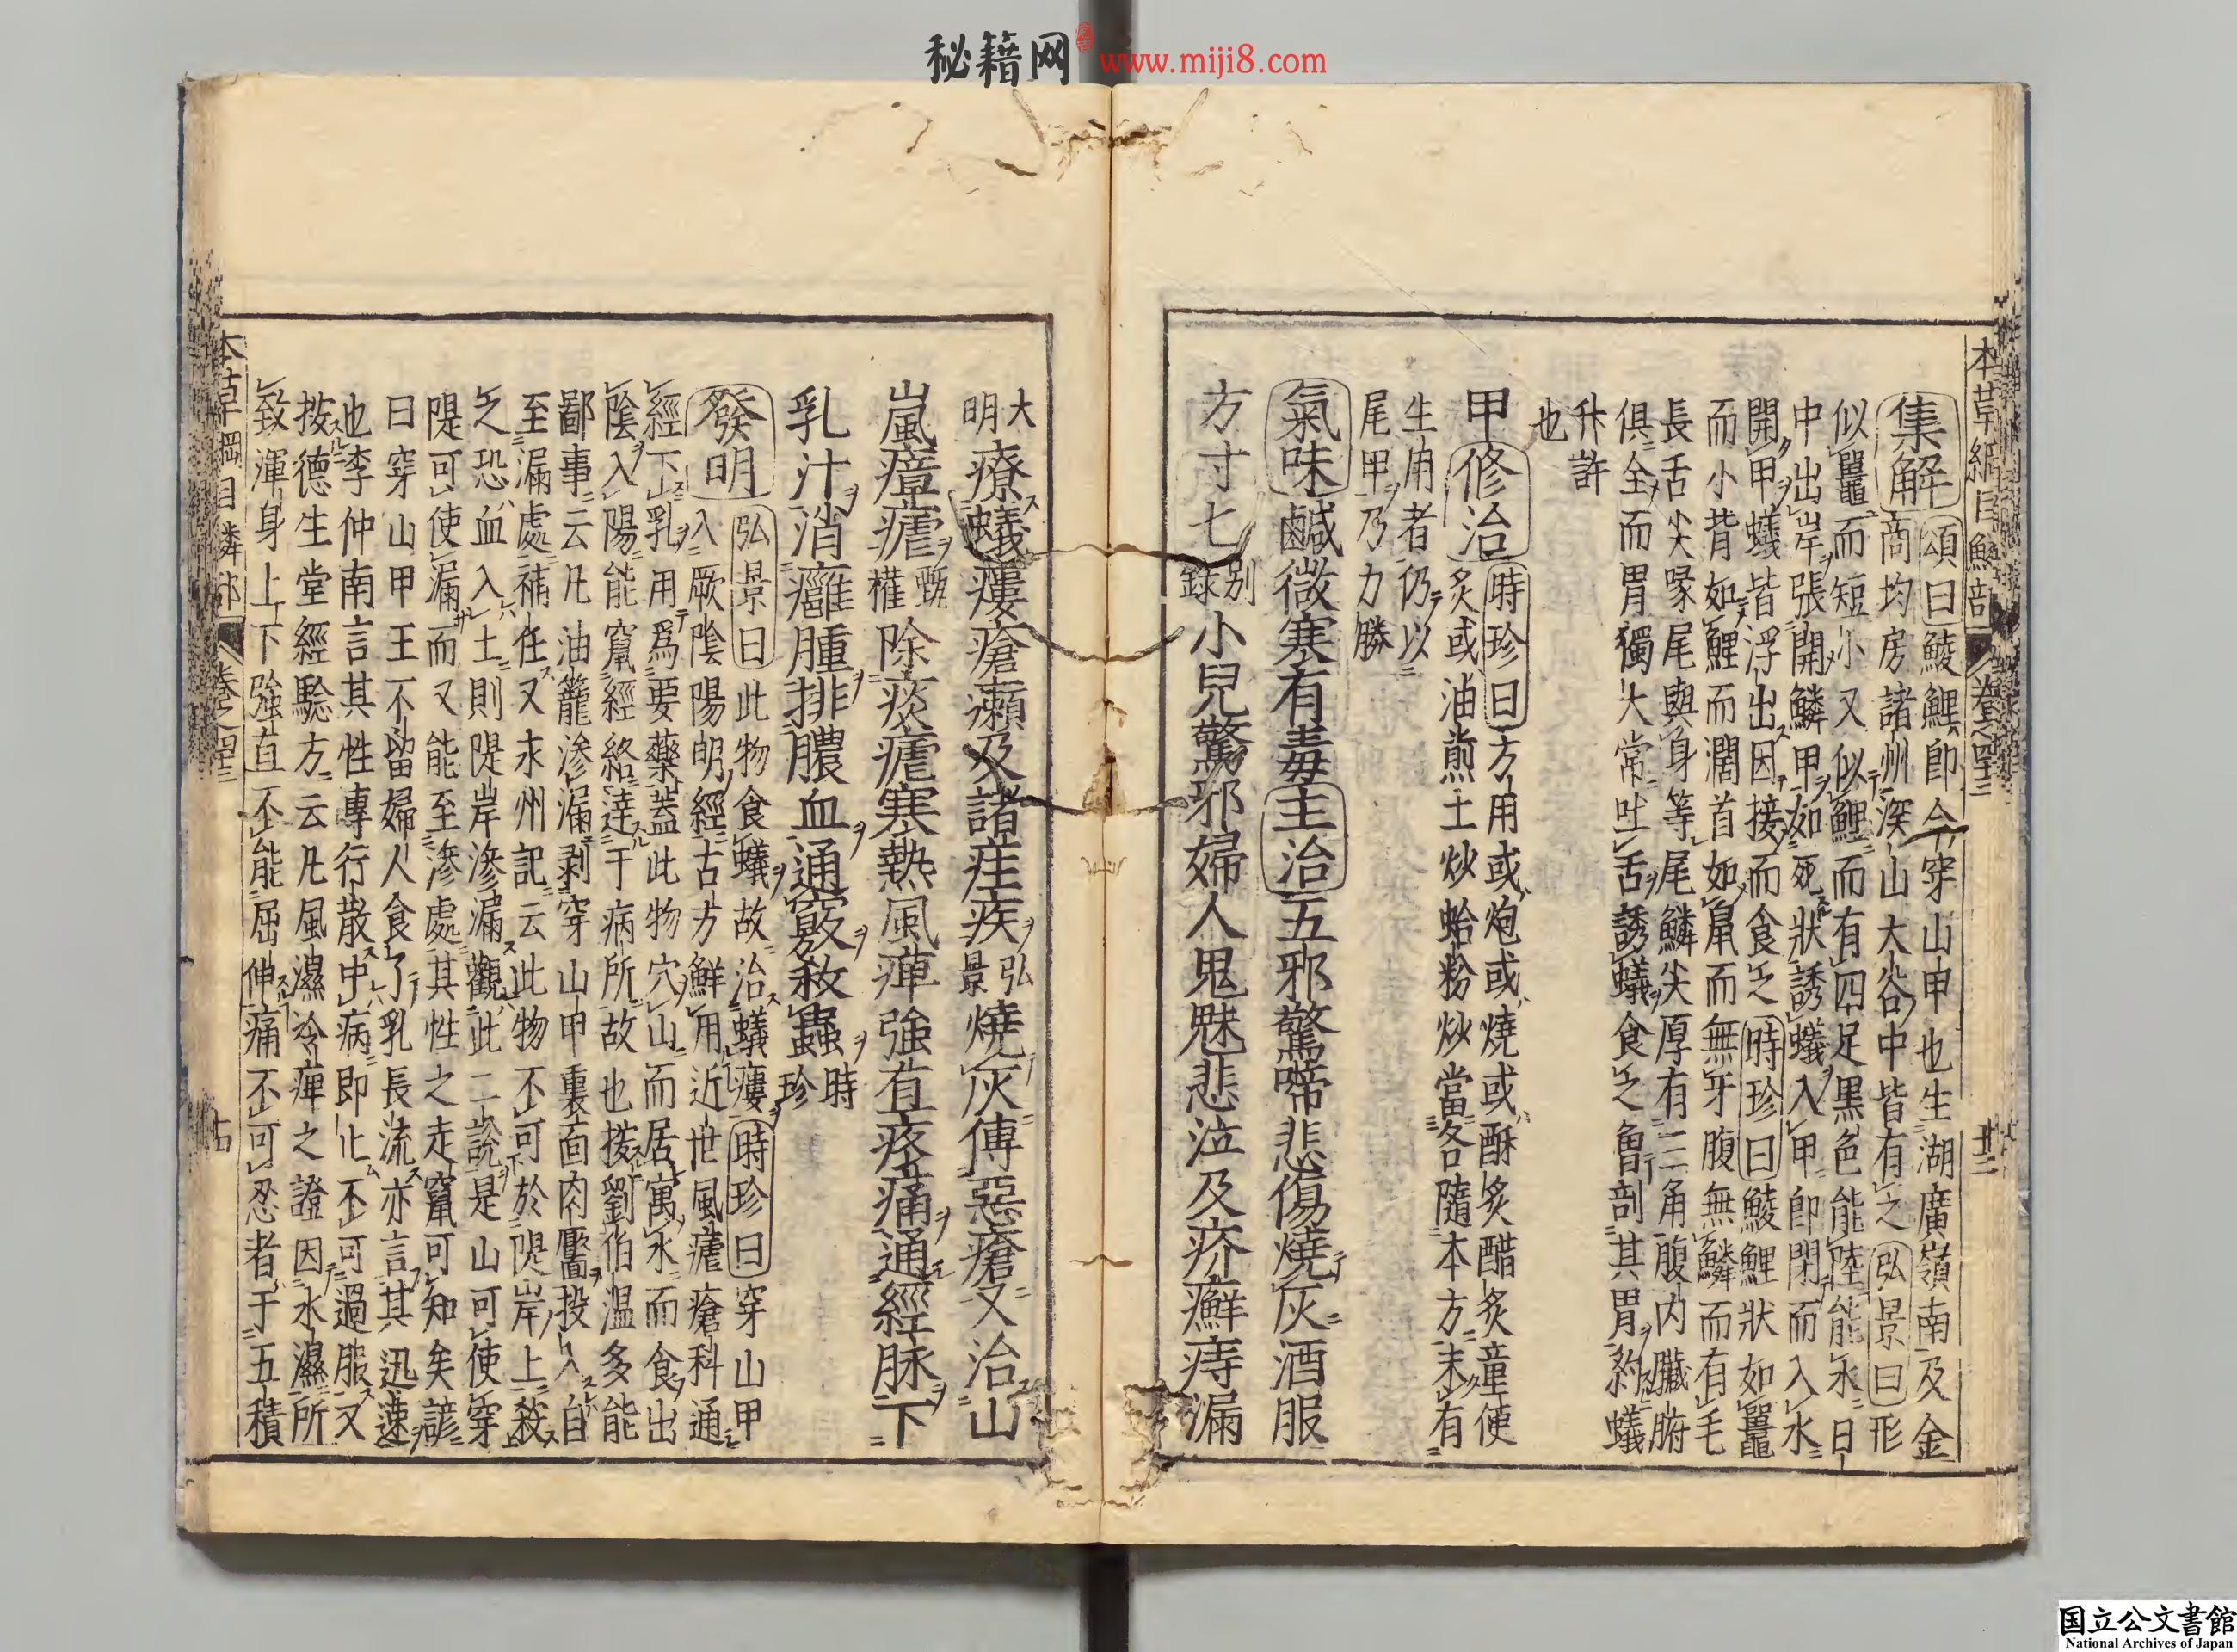 秘籍网 www.miji8.com
本草綱目鱗部 卷之四十三 廿二
集解 頌曰鯪鯉卽今穿山甲也生湖廣嶺南及金
商均房諸州深山大谷中皆有之 弘景曰形
似鼉而短小又似鯉而有四足黑色能陸能水日
中出岸張開鱗甲如死狀誘蟻入甲卽閉而入水
開甲蟻皆浮出因接而食之 時珍曰鯪鯉狀如鼉
而小背如鯉而濶首如鼠而無牙腹無鱗而有毛
長舌尖喙尾與身等尾鱗尖厚有三角腹内臟腑
俱全而胃獨大常吐舌誘蟻食之曾剖其胃約蟻
升許
也
甲 修治 時珍曰方用或炮或燒或酥炙醋炙童便
炙或油煎土炒蛤粉炒當各隨本方未有
生用者仍以
尾甲乃力勝
氣味鹹微寒有毒 主治 五邪驚啼悲傷燒灰酒服
方寸匕 别録 小兒驚邪婦人鬼魅悲泣及疥癬痔漏
大明 療蟻瘻瘡癩及諸疰疾 弘景 燒灰傅惡瘡又治山
嵐瘴瘧 甄權 除痰瘧寒熱風痺強直疼痛通經脉下
乳汁消癰腫排膿血通竅殺蟲 時珍
發明 弘景曰此物食蟻故治蟻瘻 時珍曰穿山甲
入厥陰陽明經古方鮮用近世風瘧瘡科通
經下乳用爲要藥蓋此物穴山而居寓水而食出
陰入陽能竄經絡達于病所故也按劉伯温多能
鄙事云凡油籠滲漏剥穿山甲裏面肉靨投入自
至漏處補住又永州記云此物不可於隄岸上殺
之恐血入土則隄岸滲漏觀此二說是山可使穿
隄可使漏而又能至滲處其性之走竄可知矣諺
曰穿山甲王不留婦人食了乳長流亦言其迅速
也李仲南言其性專行散中病即止不可過服又
按德生堂經驗方云凡風濕冷痺之證因水濕所
致渾身上下強直不能屈伸痛不可忍者于五積
本草綱目鱗部 卷之四十三
国立公文書館
National Archives of Japan